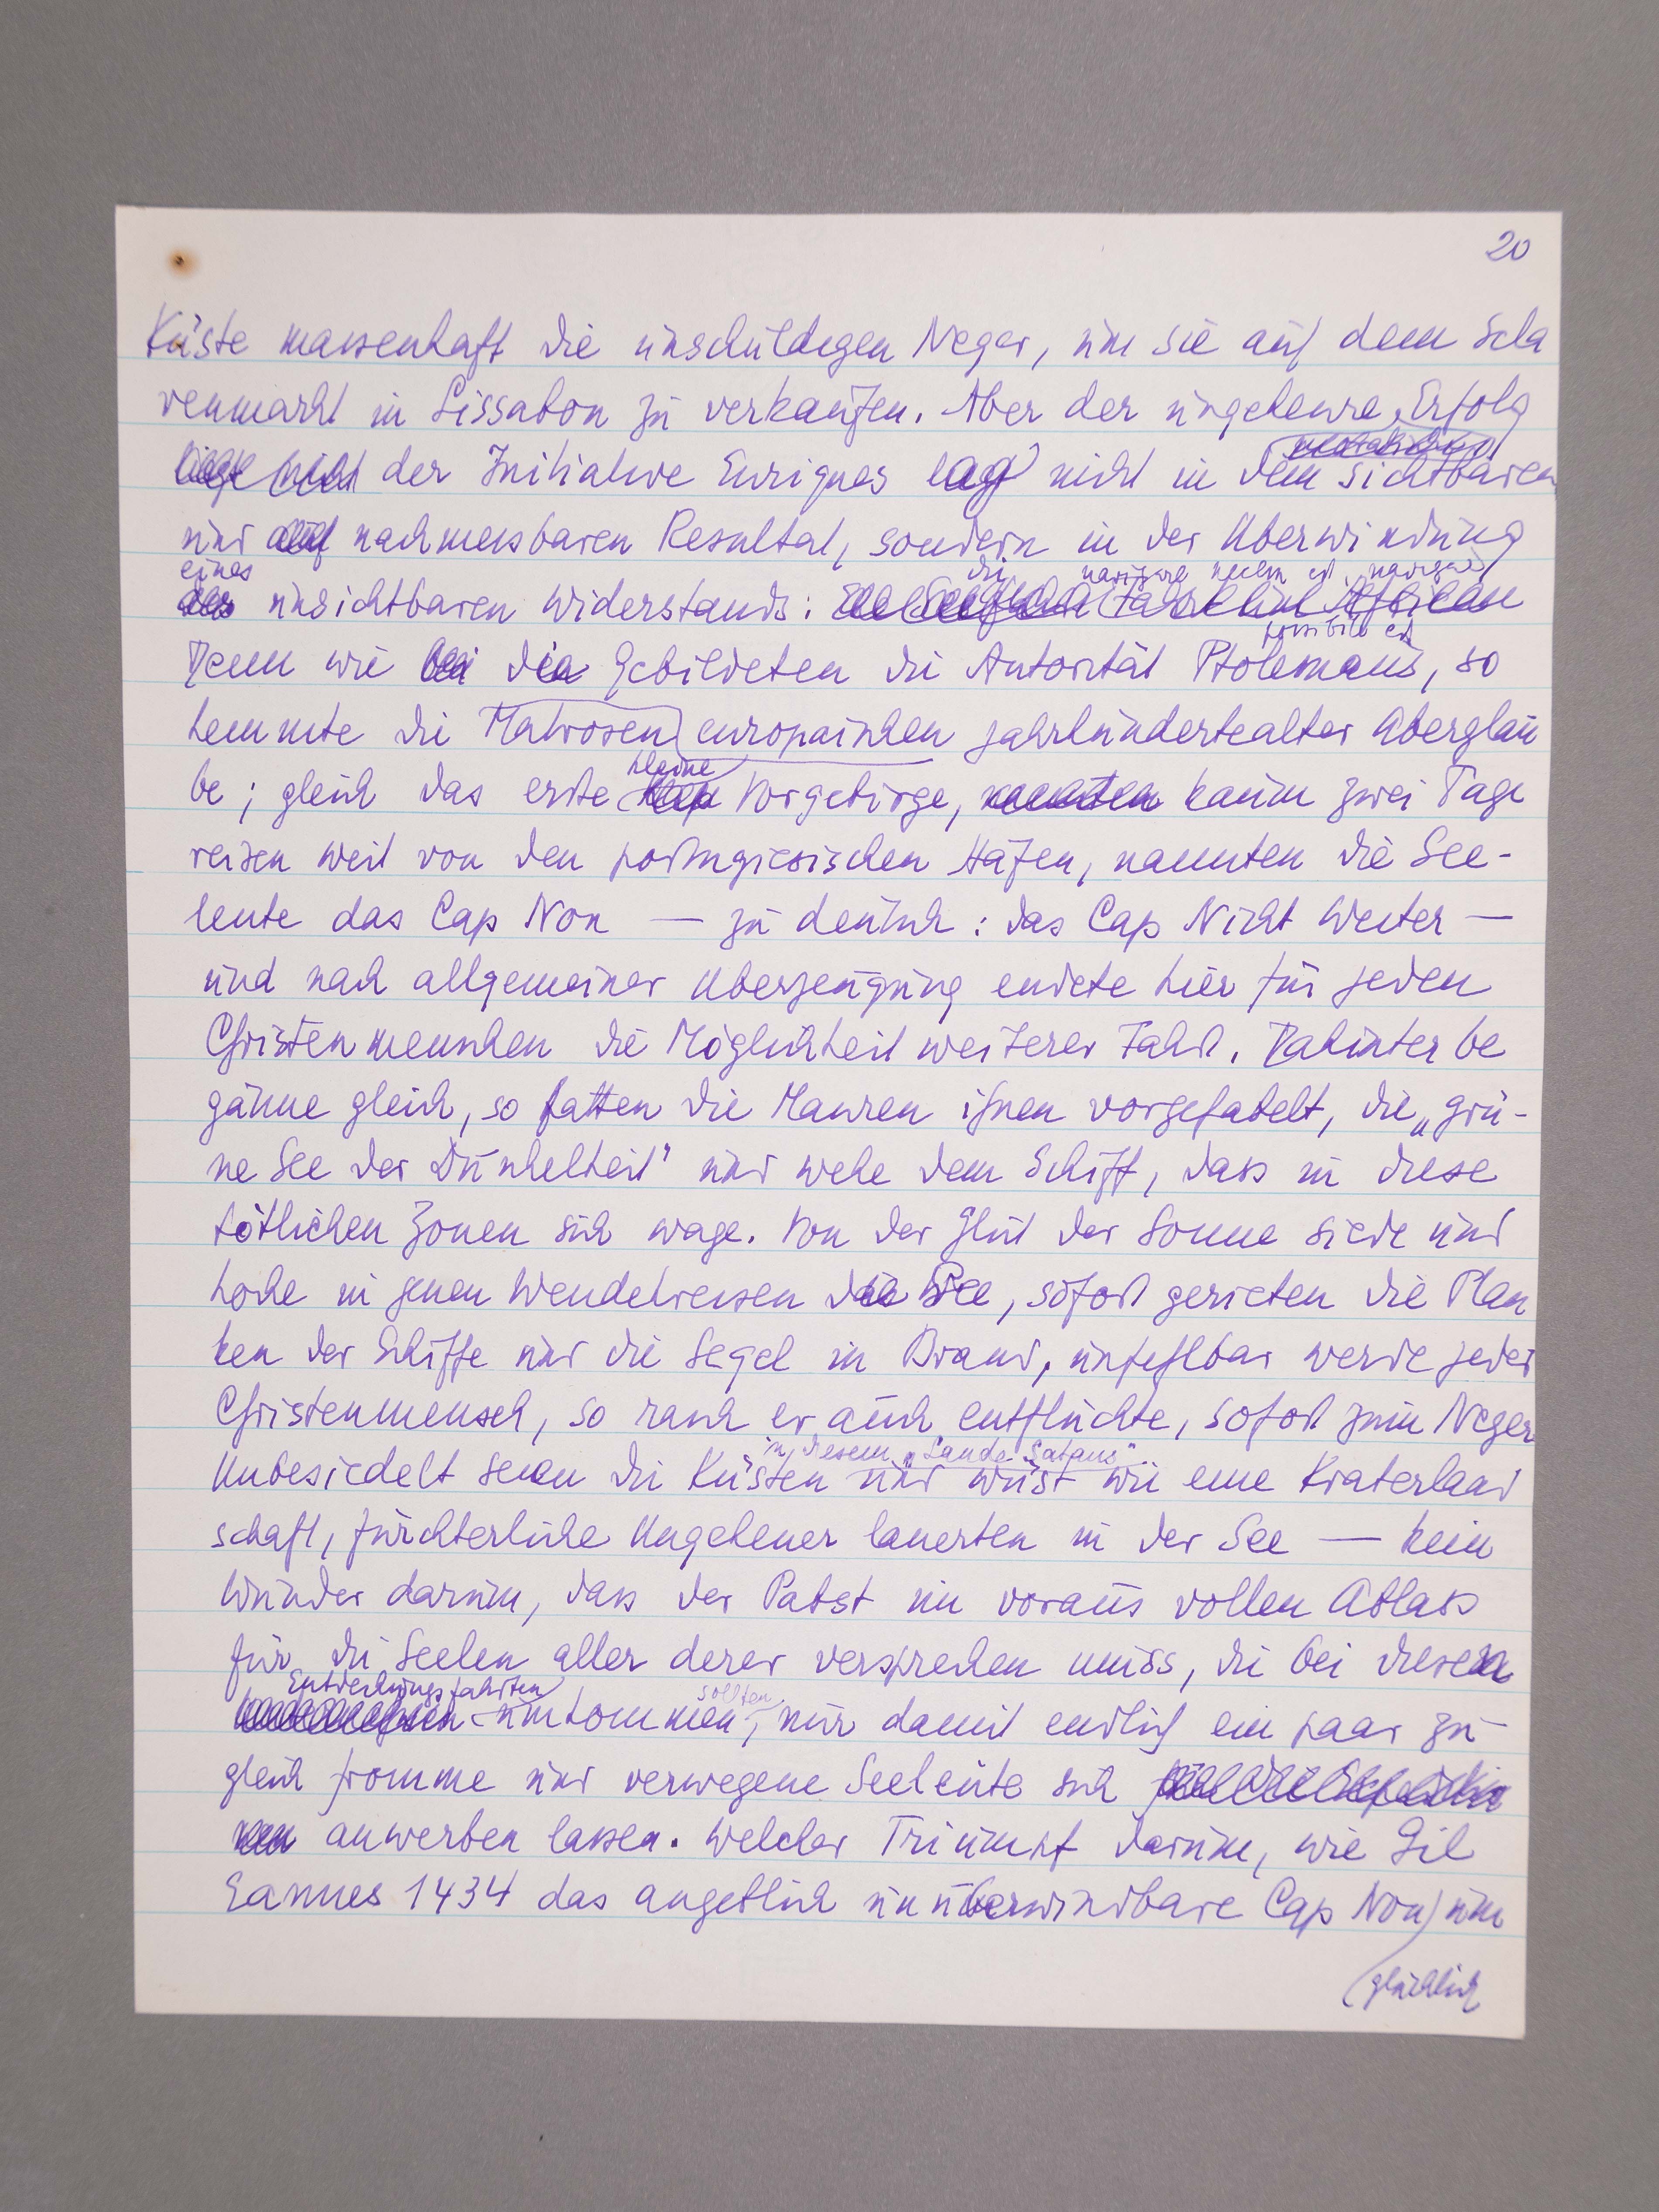 20
Küste massenhaft die unschuldigen Neger, um sie auf dem Scla
venmarkt in Lissabon zu verkaufen. Aber der ungeheure Erfolg
der Initiative Enriques lag nicht in dem sichtbaren
und nachmessbaren Resultat, sondern in der Überwindung
eines
unsichtbaren Widerstands:
possibile est
Denn wie die Gebildeten die Autorität Ptolemäus, so
hemmte die Matrosen europäischen jahrhundertealter Aberglau
kleine
be; gleich das erste Vorgebirge, kaum zwei Tage
reisen weit von den portugiesischen Häfen, nannten die See-
leute das Cap Non — zu deutsch: das Cap Nicht Weiter —
und nach allgemeiner Überzeugung endete hier für jeden
Christenmenschen die Möglichkeit weiterer Fahrt. Dahinter be
gänne gleich, so hatten die Mauren ihnen vorgefabelt, die „grü-
ne See der Dunkelheit" und wehe dem Schiff, dass in diese
tötlichen Zonen sich wage. Von der Glut der Sonne siede und
koche in jenen Wendekreisen die See, sofort gerieten die Plan
ken der Schiffe und die Segel in Brand, unfehlbar werde jeder
Christenmensch, so rasch er auch entflüchte, sofort zum Neger
in diesem „Lande Satans"
Unbesiedelt seien die Küsten und wüst wie eine Kraterland
schaft, fürchterliche Ungeheuer lauerten in der See — kein
Wunder darum, dass der Pabst im voraus vollen Ablass
für die Seelen aller derer versprechen muss, die bei diesen
Entdeckungsfahrten sollten
umkommen, nur damit endlich ein paar zu-
gleich fromme und verwegene Seeleute sich
anwerben lassen. Welcher Triumpf darum, wie Gil
Eannes 1434 das angeblich unüberwindbare Cap Non um
glücklich